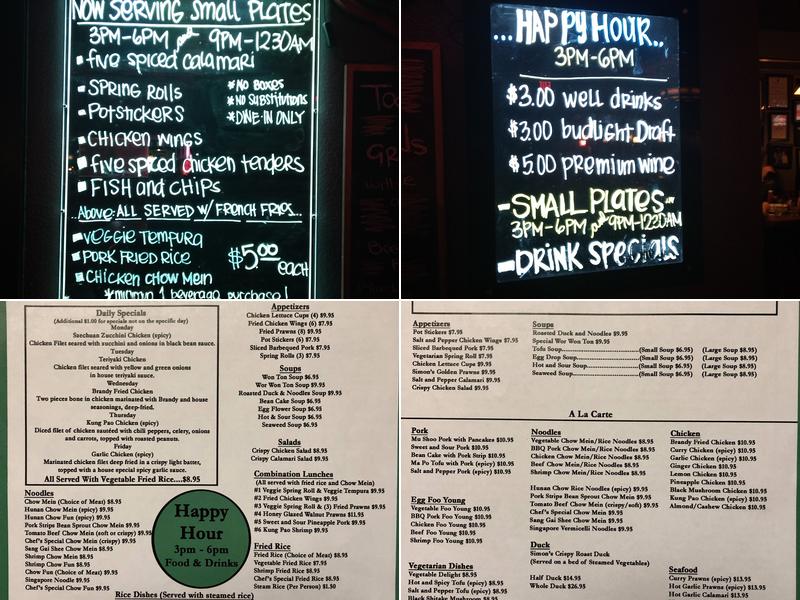 NOW SERVING SMALL PLATES
3PM-6PM and 9PM-1230AM
five spiced calamari
SPRING ROLLS
POTSTICKERS
*NO BOXES
*NO SUBSTITUTIONS
*DINE-IN ONLY
CHICKEN WINGS
five spiced chicken tenders
FISH and CHIPS
..Above: ALL SERVED W/ FRENCH FRIES...
VEGGIE TEMPURA
PORK FRIED RICE
CHICKEN CHOW MEIN
$5.00 EACH
*minimum 1 beverage purchase!
...HAPPY HOUR...
3PM-6PM
$3.00 well drinks
$3.00 budlight Draft
$5.00 premium wine
-SMALL PLATES
3PM-6PM and 9PM-1230AM
-DRINK SPECIALS
Daily Specials
(Additional $1.00 for specials not on the specific day)
Monday
Szechuan Zucchini Chicken (epicy)
Chicken Filet seared with zucchini and onions in black bean sauce.
Tuesday
Teriyaki Chicken
Chicken filet seared with yellow and green onions
in house teriyaki sauce.
Wednesday
Brandy Fried Chicken
Two pieces bone in chicken marinated with Brandy and house
seasonings, deep-fried.
Thursday
Kung Pao Chicken (epicy)
Diced filet of chicken sautéed with chili peppers, celery, onions
and carrots, topped with roasted peanuts.
Friday
Garlic Chicken (epicy)
Marinated chicken filet deep fried in a crispy light batter,
topped with a house special spicy garlic sauce.
All Served With Vegetable Fried Rice....$8.95
Noodles
Chow Mein (Choice of Meat) $8.95
Hunan Chow Mein (epicy) $9.95
Hunan Chow Fun (epicy) $9.95
Pork Stripe Bean Sprout Chow Mein $9.95
Tomato Beef Chow Mein (soft or crispy) $9.95
Chef's Special Chow Mein (crispy) $9.95
Sang Gai Shee Chow Mein $8.95
Shrimp Chow Mein $8.95
Shrimp Chow Fun $8.95
Chow Fun (Choice of Meat) $8.95
Singapore Noodle $9.95
Chef's Special Chow Fun $9.95
Happy
Hour
3pm - 6pm
Food & Drinks
Rice Dishes (Served with steamed rice)
Appetizers
Chicken Lettuce Cups (4) $9.95
Fried Chicken Wings (6) $7.95
Fried Prawns (8) $9.95
Pot Stickers (6) $7.95
Sliced Barbequed Pork $7.95
Spring Rolls (3) $7.95
Soups
Won Ton Soup $6.95
Wor Won Ton Soup $9.95
Roasted Duck & Noodles Soup $9.95
Bean Cake Soup $6.95
Egg Flower Soup $6.95
Hot & Sour Soup $6.95
Seaweed Soup $6.95
Salads
Crispy Chicken Salad $8.95
Crispy Calamari Salad $9.95
Combination Lunches
(All served with fried rice and Chow Mein)
#1 Veggie Spring Roll & Veggie Tempura $9.95
#2 Fried Chicken Wings $9.95
#3 Veggie Spring Roll & (3) Fried Prawns $9.95
#4 Honey Glazed Walnut Prawns $11.95
#5 Sweet and Sour Pineapple Pork $9.95
#6 Kung Pao Shrimp $9.95
Fried Rice
Fried Rice (Choice of Meat) $8.95
Vegetable Fried Rice $7.95
Shrimp Fried Rice $8.95
Chef's Special Fried Rice $8.95
Steam Rice (Per Person) $1.50
Appetizers
Pot Stickers $7.95
Salt and Pepper Chicken Wings $7.95
Sliced Barbequed Pork $7.95
Vegetarian Spring Roll $7.95
Chicken Lettuce Cups $9.95
Simon's Golden Prawns $9.95
Salt and Pepper Calamari $9.95
Crispy Chicken Salad $9.95
Soups
Roasted Duck and Noodles $9.95
Special Wor Won Ton $9.95
Tofu Soup...(Small Soup $6.95) (Large Soup $8.95)
Egg Drop Soup...(Small Soup $6.95) (Large Soup $8.95)
Hot and Sour Soup...(Small Soup $6.95) (Large Soup $8.95)
Seaweed Soup...(Small Soup $6.95) (Large Soup $8.95)
A La Carte
Pork
Mu Shoo Pork with Pancakes $10.95
Sweet and Sour Pork $10.95
Bean Cake with Pork Strip $10.95
Ma Po Tofu with Pork (epicy) $10.95
Salt and Pepper Pork $10.95
Egg Foo Young
Vegetable Foo Young $10.95
BBQ Pork Foo Young $10.95
Chicken Foo Young $10.95
Beef Foo Young $10.95
Shrimp Foo Young $10.95
Vegetarian Dishes
Vegetable Delight $8.95
Hot and Spicy Tofu (epicy) $8.95
Salt and Pepper Tofu (epicy) $8.95
Black Shitake Mushroom $8.95
Noodles
Vegetable Chow Mein/Rice Noodles $8.95
BBQ Pork Chow Mein/Rice Noodles $9.95
Chicken Chow Mein/Rice Noodles $9.95
Beef Chow Mein/Rice Noodles $9.95
Shrimp Chow Mein/Rice Noodles $10.95
Hunan Chow Mein/Rice Noodles (epicy) $9.95
Pork Stripe Bean Sprout Chow Mein $9.95
Tomato Beef Chow Mein (crispy/soft) $9.95
Chef's Special Chow Mein $10.95
Sang Gai Shee Chow Mein $9.95
Singapore Vermicelli Noodles $9.95
Duck
Simon's Crispy Roast Duck
(Served on a bed of Steamed Vegetables)
Half Duck $14.95
Whole Duck $26.95
Chicken
Brandy Fried Chicken $10.95
Curry Chicken (epicy) $10.95
Garlic Chicken (epicy) $10.95
Ginger Chicken $10.95
Lemon Chicken $10.95
Pineapple Chicken $10.95
Black Mushroom Chicken $10.95
Kung Pao Chicken (epicy) $10.95
Almond/Cashew Chicken $10.95
Seafood
Curry Prawns (epicy) $13.95
Hot Garlic Prawns (epicy) $13.95
Hot Garlic Calamari $13.95